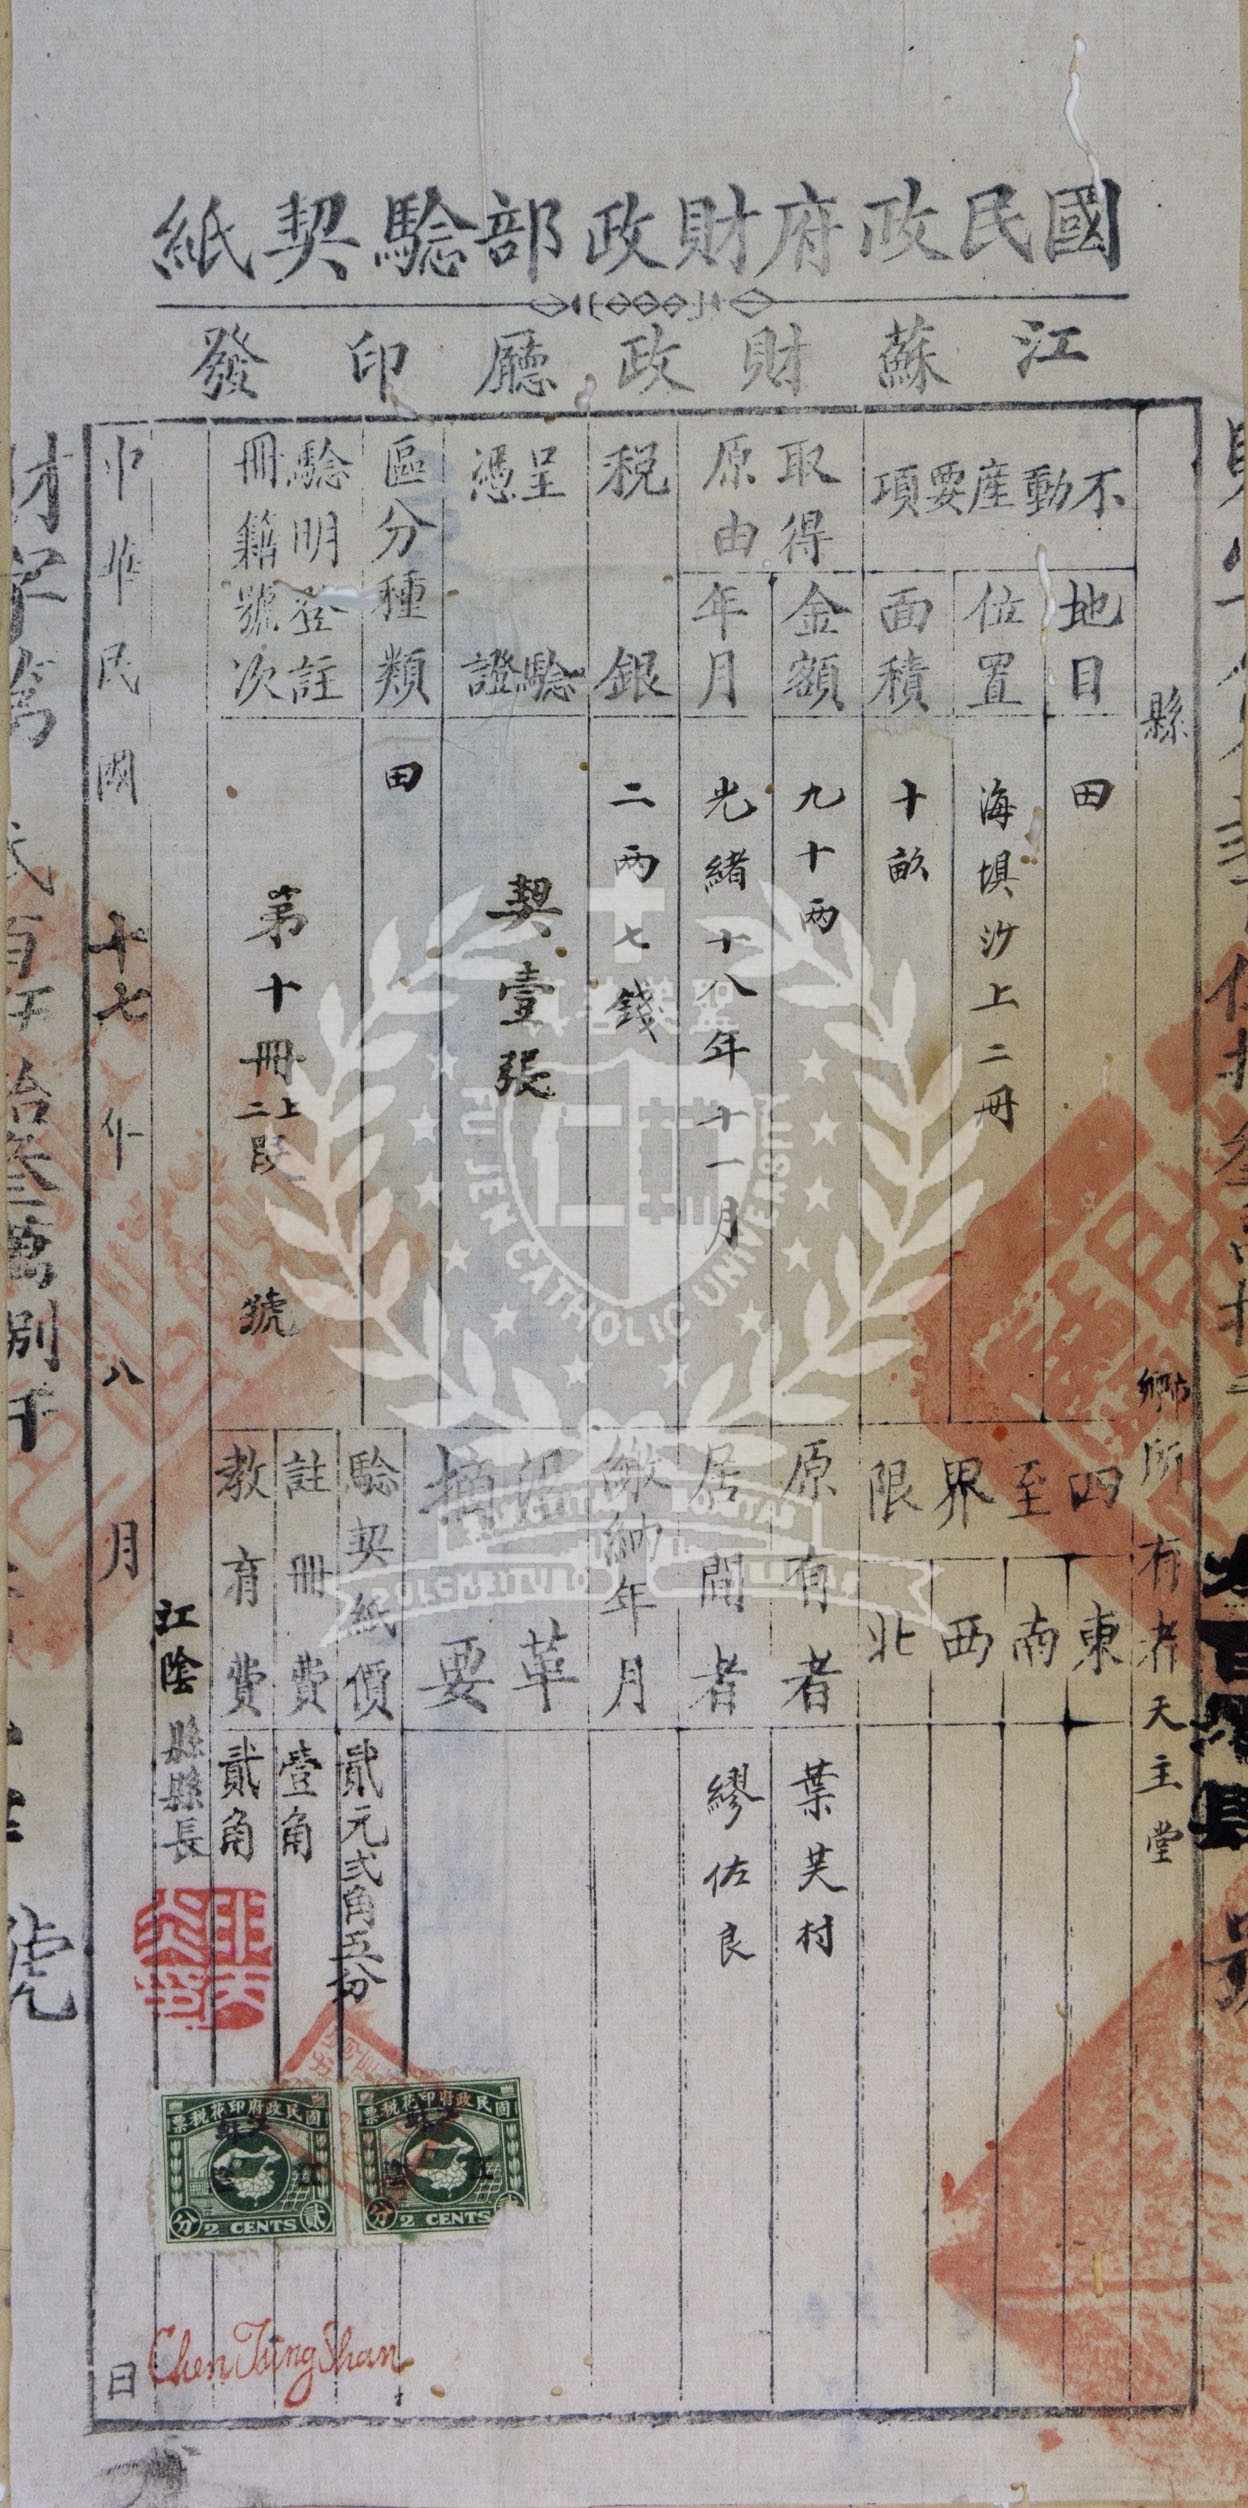 國民政府財政部驗契紙
江蘇財政廳印發
縣
鄉所有者天主堂
不動產要項
地目
田
位置
海埧沙上二冊
面積
十畝
取得原由
金額
九十兩
年月
光緒十八年十一月
稅銀
二兩七錢
呈驗憑證
契壹張
區分種類
田
驗明登註冊籍號次
第十冊上二段 號
四至界限
東
南
西
北
原有者
葉芙村
居間者
繆佐良
繳納年月
沿革摘要
驗契紙價
貳元弍角五分
註冊費
壹角
教育費
貳角
江陰縣縣長
中華民國十七年八月 日
財字第
號
國民政府印花稅票
2 CENTS
貳分
國民政府印花稅票
2 CENTS
分
Chen Tung Shan
FU JEN CATHOLIC UNIVERSITY